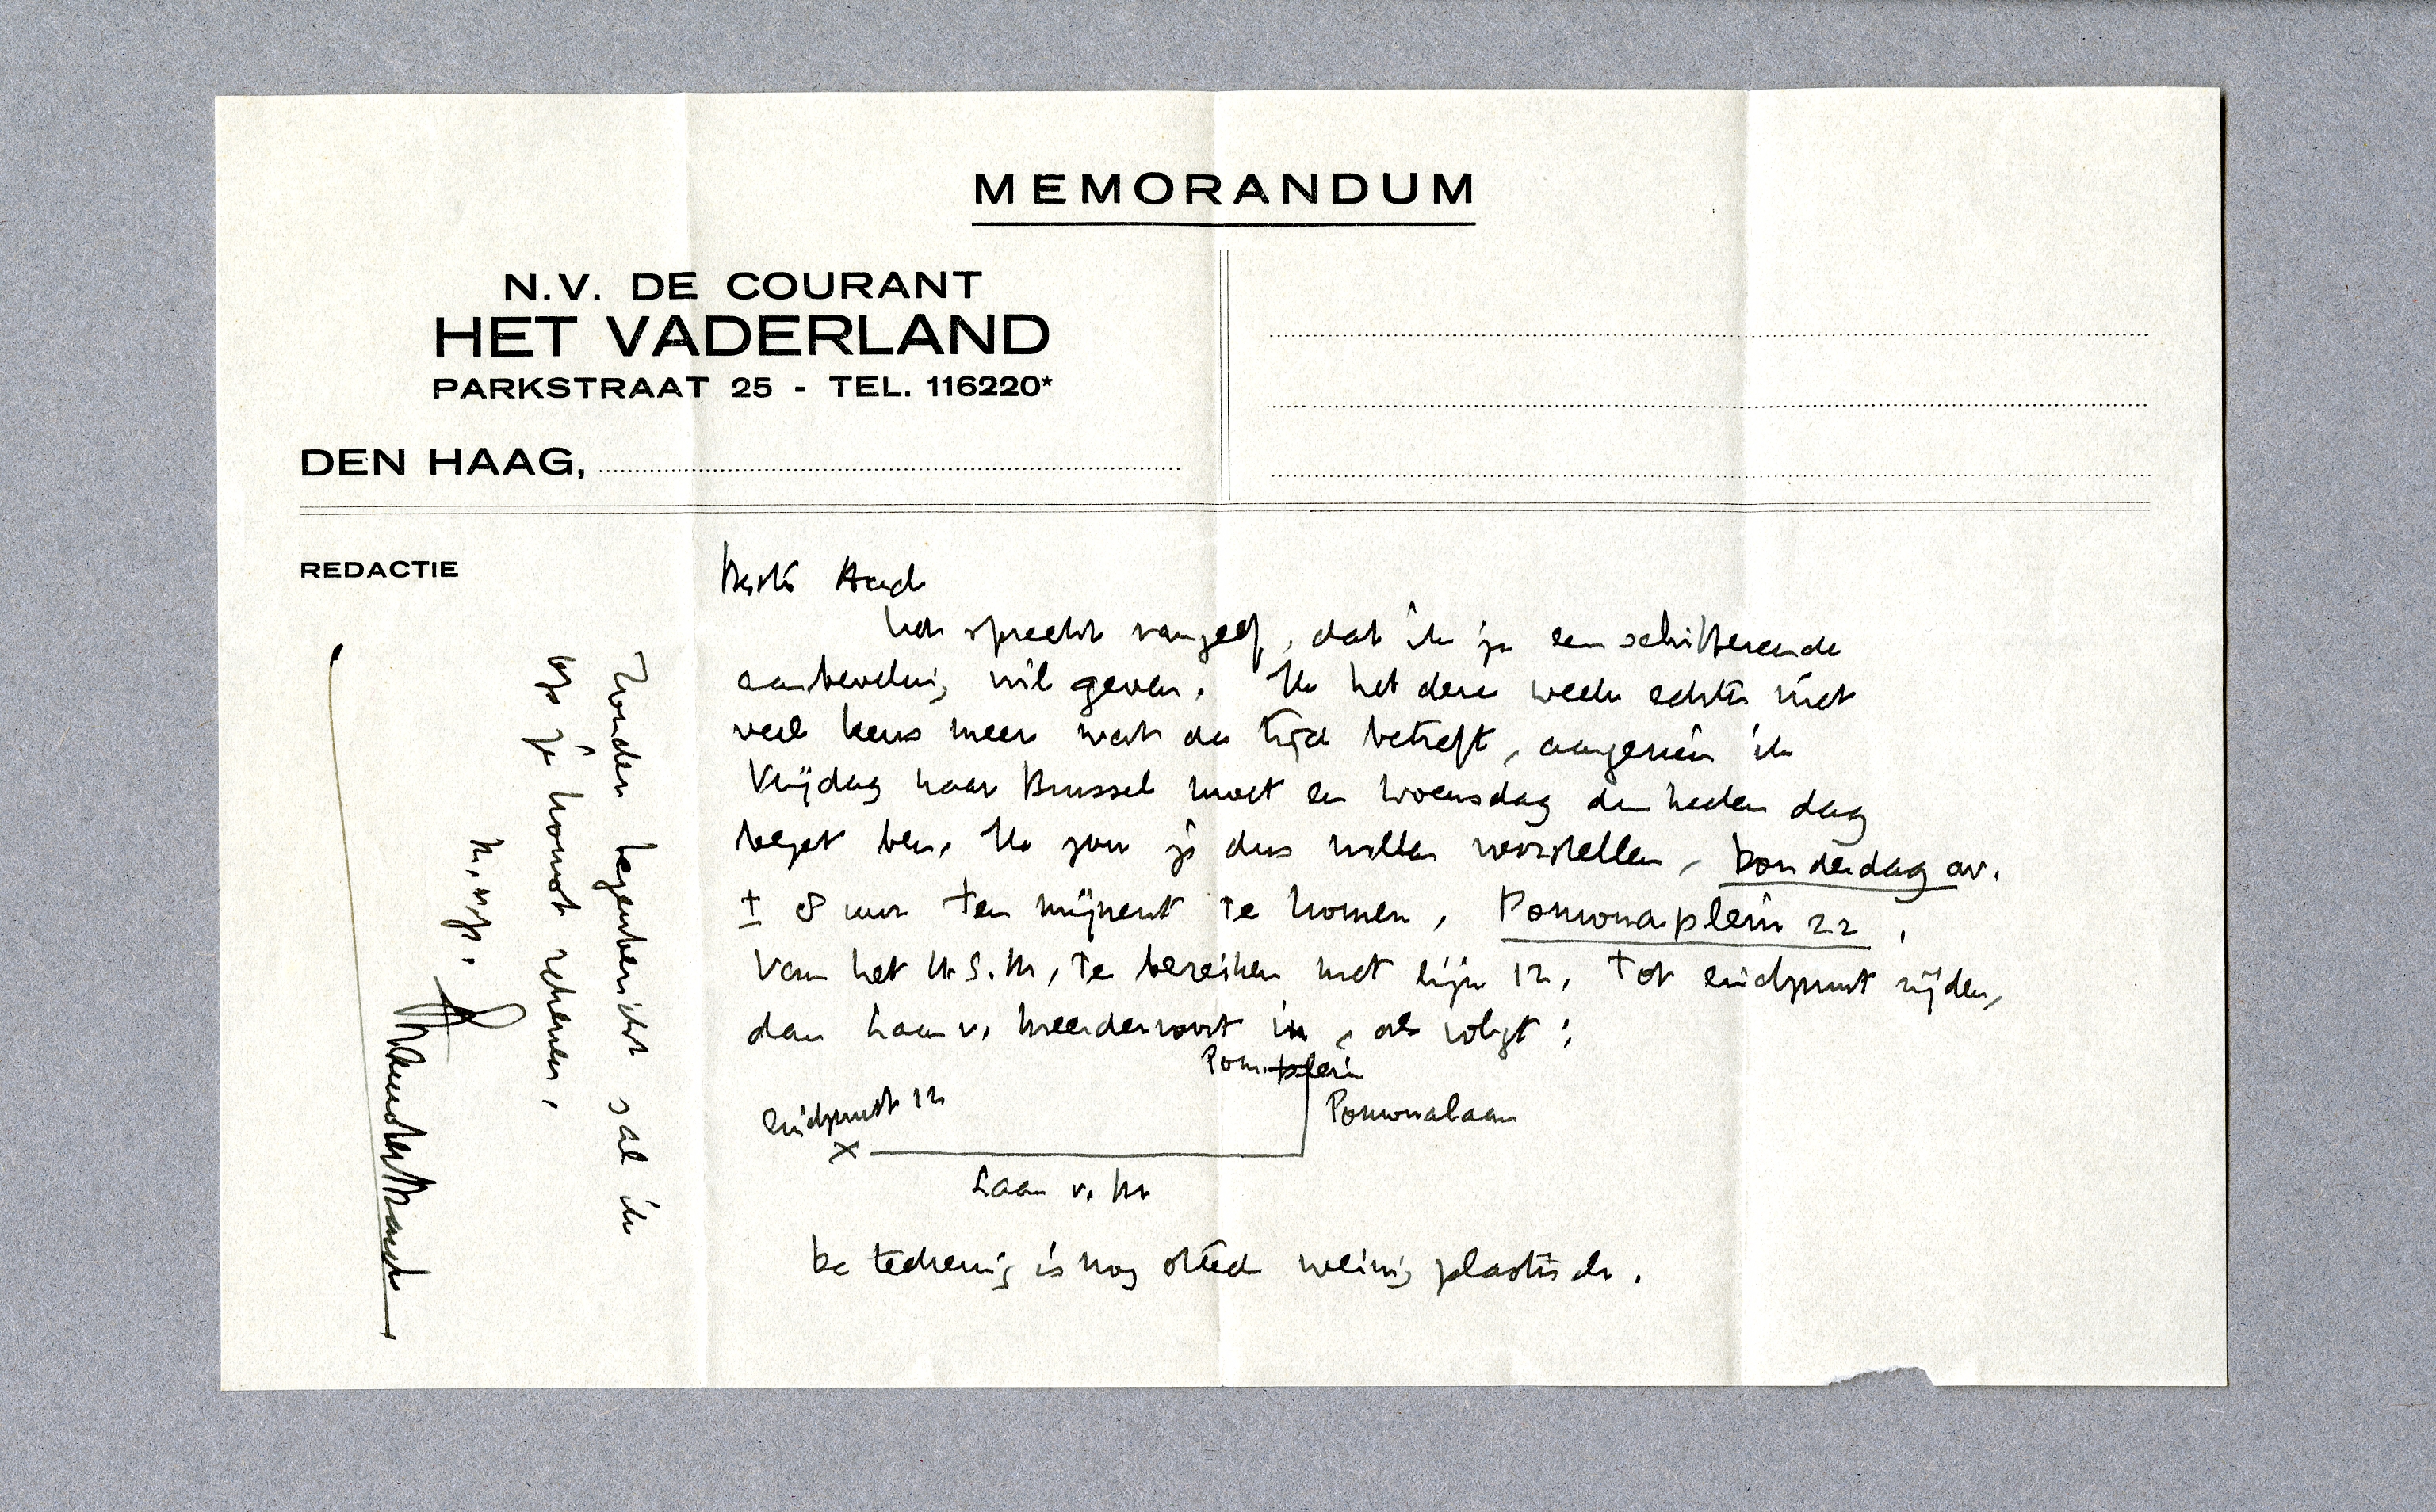 MEMORANDUM
N.V. DE COURANT
HET VADERLAND
PARKSTRAAT 25 - TEL. 116220*
DEN HAAG,
REDACTIE
Beste Aad
het spreekt vanzelf, dat ik je een schitterende
aanbeveling wil geven. Ik heb deze week echter niet
veel keus meer wat de tijd betreft, aangezien ik
Vrijdag naar Brussel moet en Woensdag den heelen dag
bezet ben. Ik zou je dus willen voorstellen, Donderdag av.
± 8 uur ten mijnent te komen, Pomonaplein 22.
Van het H.S.M. te bereiken met lijn 12, tot eindpunt rijden,
dan Laan v. Meerdervoort in, als volgt:
Pom.plein
eindpunt 12
Pomonalaan
X
Laan v. M
De teekening is nog steeds weinig plastisch.
Zonder tegenbericht zal ik
op je komst rekenen.
h.vgr.
Menno ter Braak